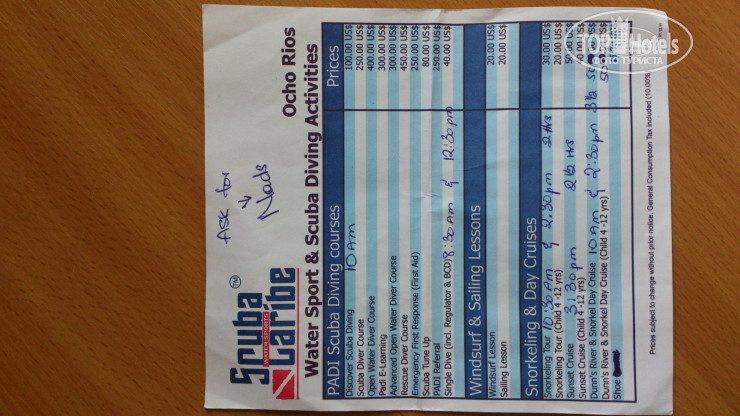 Scuba Caribe TM
WATER SPORTS
Ask for
Nads
Ocho Rios
Water Sport & Scuba Diving Activities
PADI Scuba Diving courses Prices
Discover Scuba Diving 10 Am 100.00 US$
Scuba Diver Course 250.00 US$
Open Water Diver Course 400.00 US$
Padi E-Learning 300.00 US$
Advanced Open Water Diver Course 300.00 US$
Rescue Diver Course 450.00 US$
Emergency First Response (First Aid) 250.00 US$
Scuba Tune Up 80.00 US$
PADI Referral 250.00 US$
Single Dive (incl. Regulator & BCD) 8:30 Am & 12:30 pm 40.00 US$
Windsurf & Sailing Lessons
Windsurf Lesson 20.00 US$
Sailing Lesson 20.00 US$
Snorkeling & Day Cruises
Snorkeling Tour 10:30 Am & 2:30 pm 2 Hrs 30.00 US$
Snorkeling Tour (Child 4 -12 yrs) 20.00 US$
Sunset Cruise 3:30 pm 2 1/2 Hrs 50.00 US$
Sunset Cruise (Child 4 -12 yrs)
Dunn's River & Snorkel Day Cruise 10 Am & 2:30 pm 3 1/2
Dunn's River & Snorkel Day Cruise (Child 4 -12 yrs)
Shoe
Prices subject to change without prior notice. General Consumption Tax included (10.00%
TopHotels
ФОТО ТУРИСТА